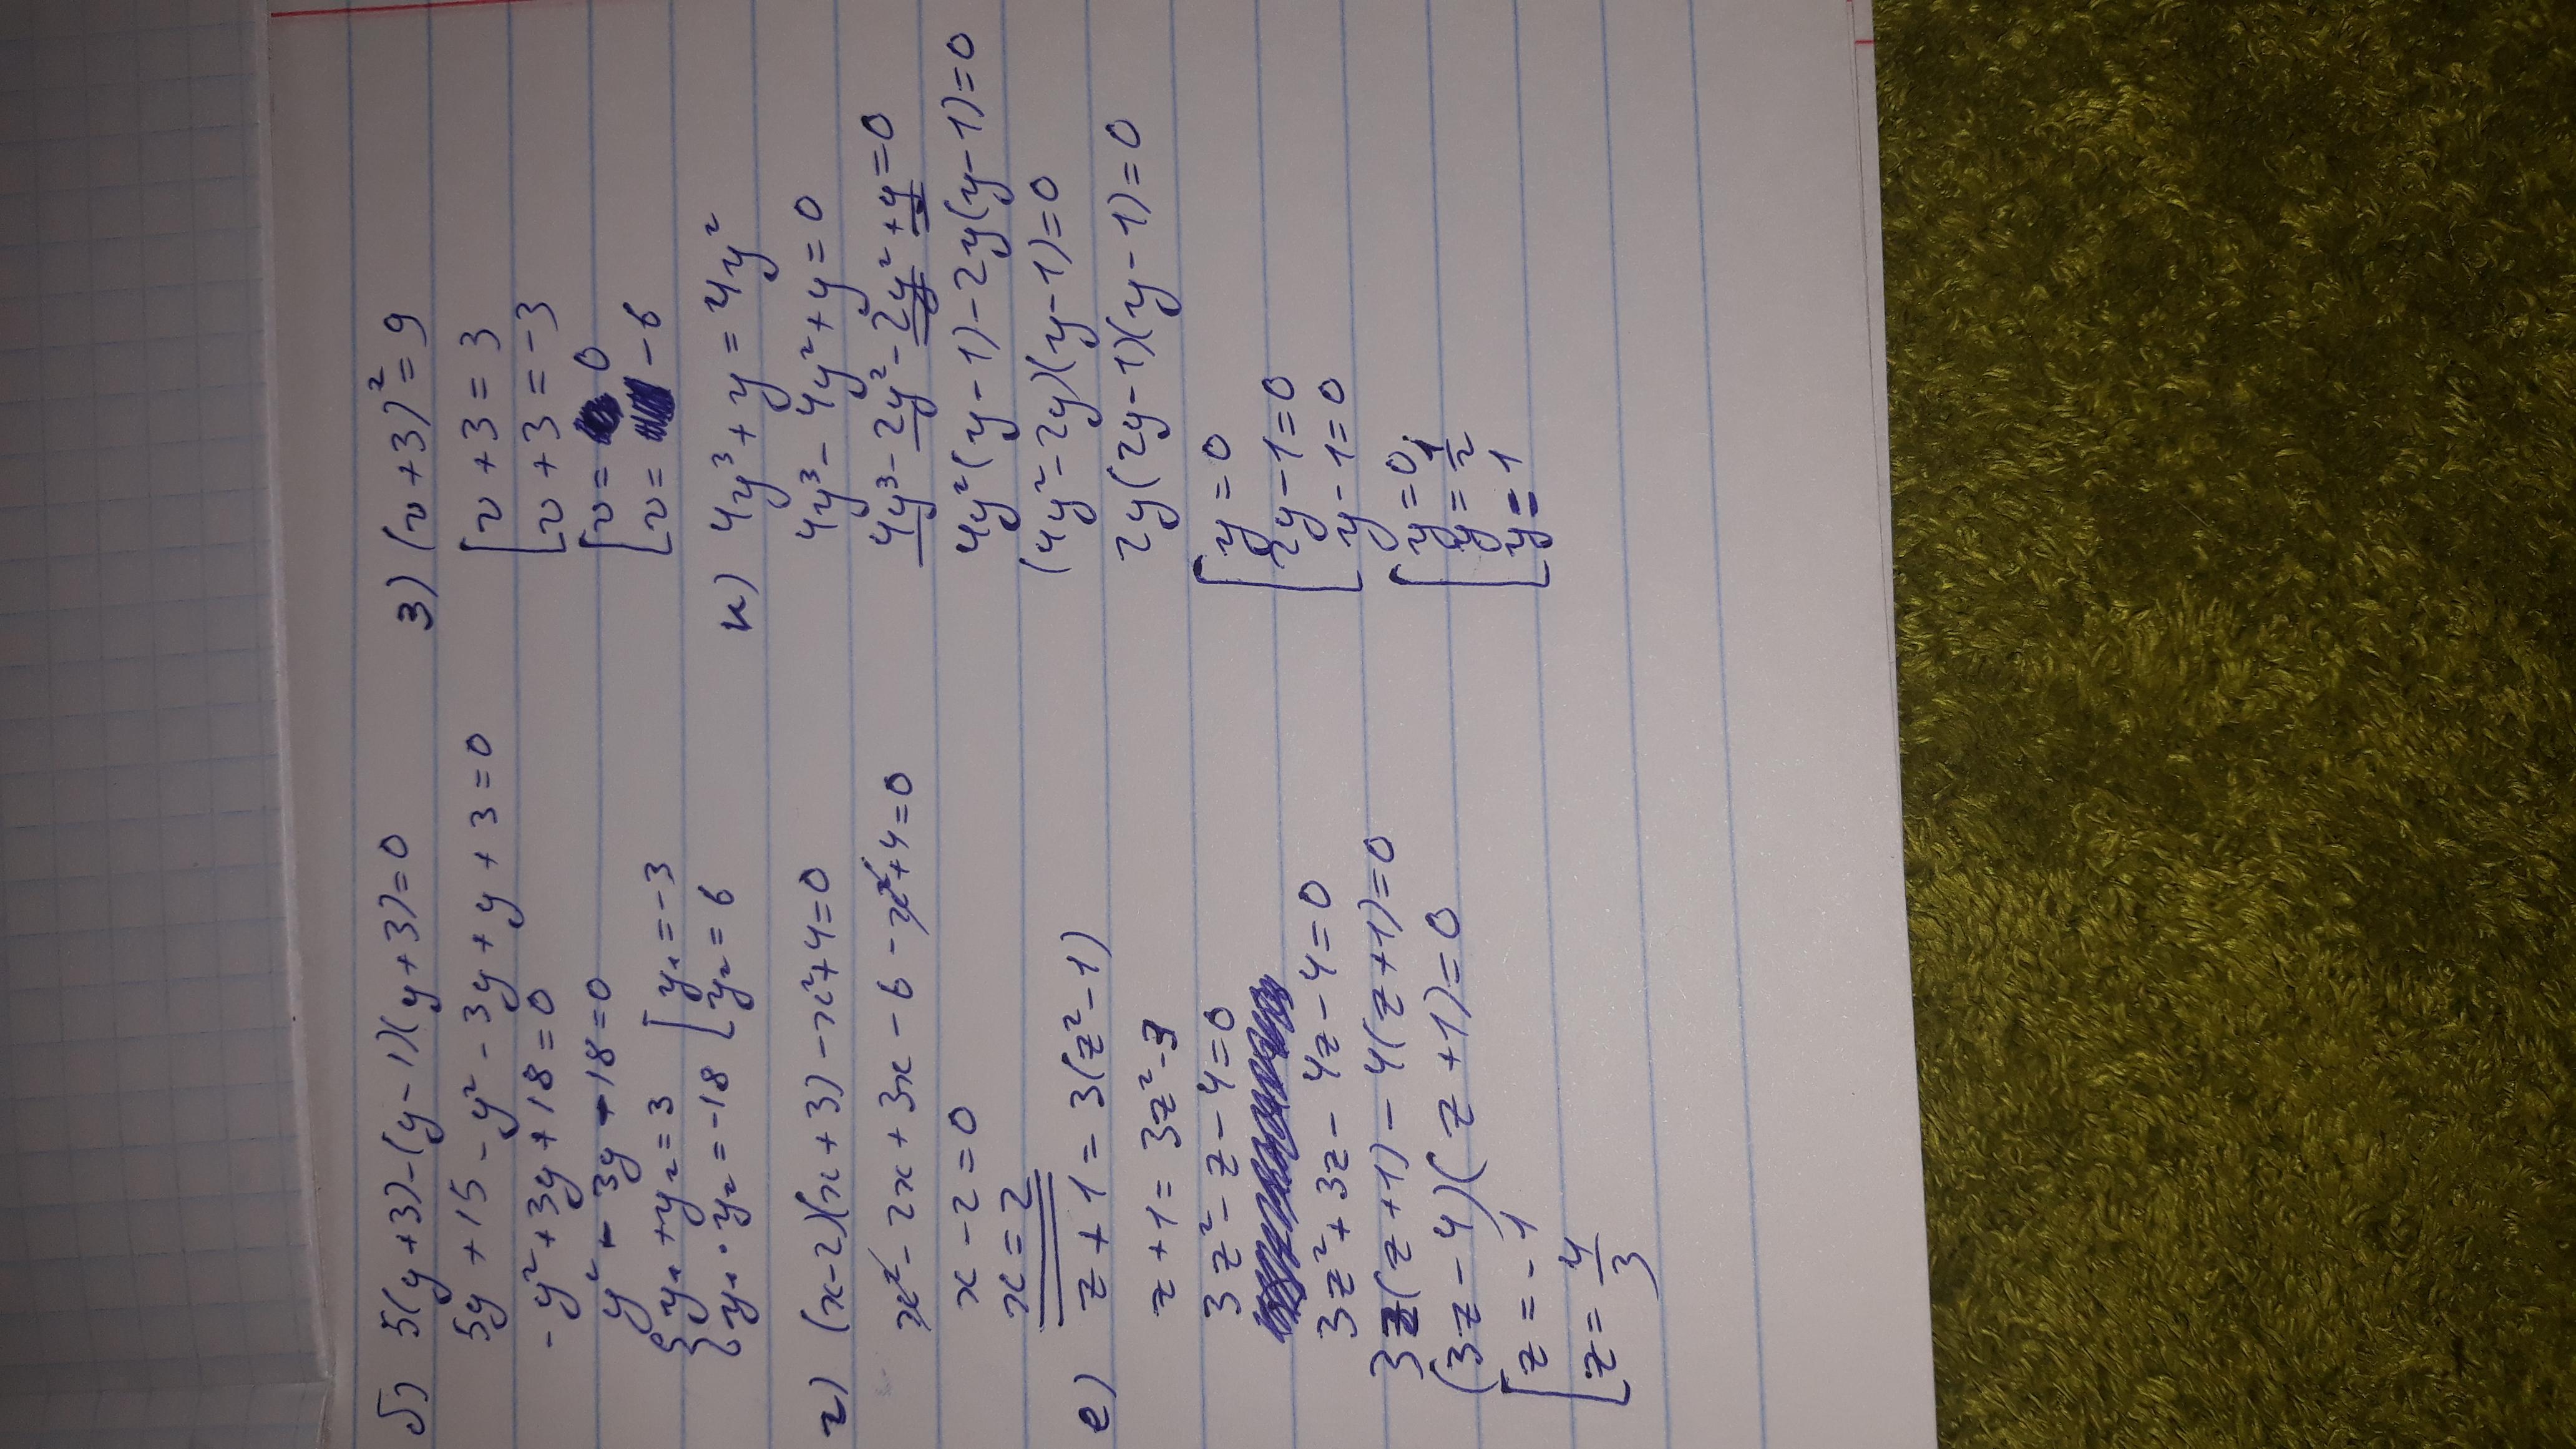 б) 5(y+3)-(y-1)(y+3)=0
5y+15-y²-3y+y+3=0
-y²+3y+18=0
y²-3y-18=0
{y₁+y₂=3 [y₁=-3
{y₁·y₂=-18 [y₂=6
г) (x-2)(x+3)-x²+4=0
x²-2x+3x-6-x²+4=0
x-2=0
x=2
е) z+1=3(z²-1)
z+1=3z²-3
3z²-z-4=0
3z²+3z-4z-4=0
3z(z+1)-4(z+1)=0
(3z-4)(z+1)=0
[z=-1
[z=4/3
з) (v+3)²=9
[v+3=3
[v+3=-3
[v=0
[v=-6
к) 4y³+y=4y²
4y³-4y²+y=0
4y³-2y²-2y²+y=0
4y²(y-1)-2y(y-1)=0
(4y²-2y)(y-1)=0
2y(2y-1)(y-1)=0
[y=0
[2y-1=0
[y-1=0
[y=0
[y=1/2
[y=1